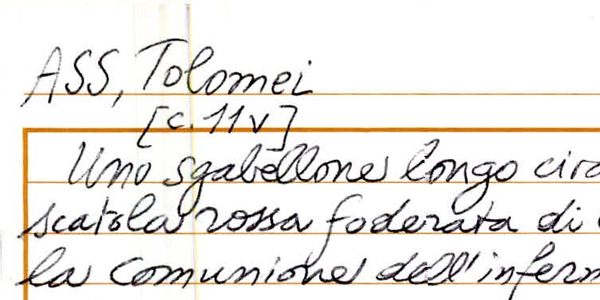 ASS, Tolomei
[c. 11v]
Uno sgabellone longo circ
scatola rossa foderata di
la Comunione dell'inferm